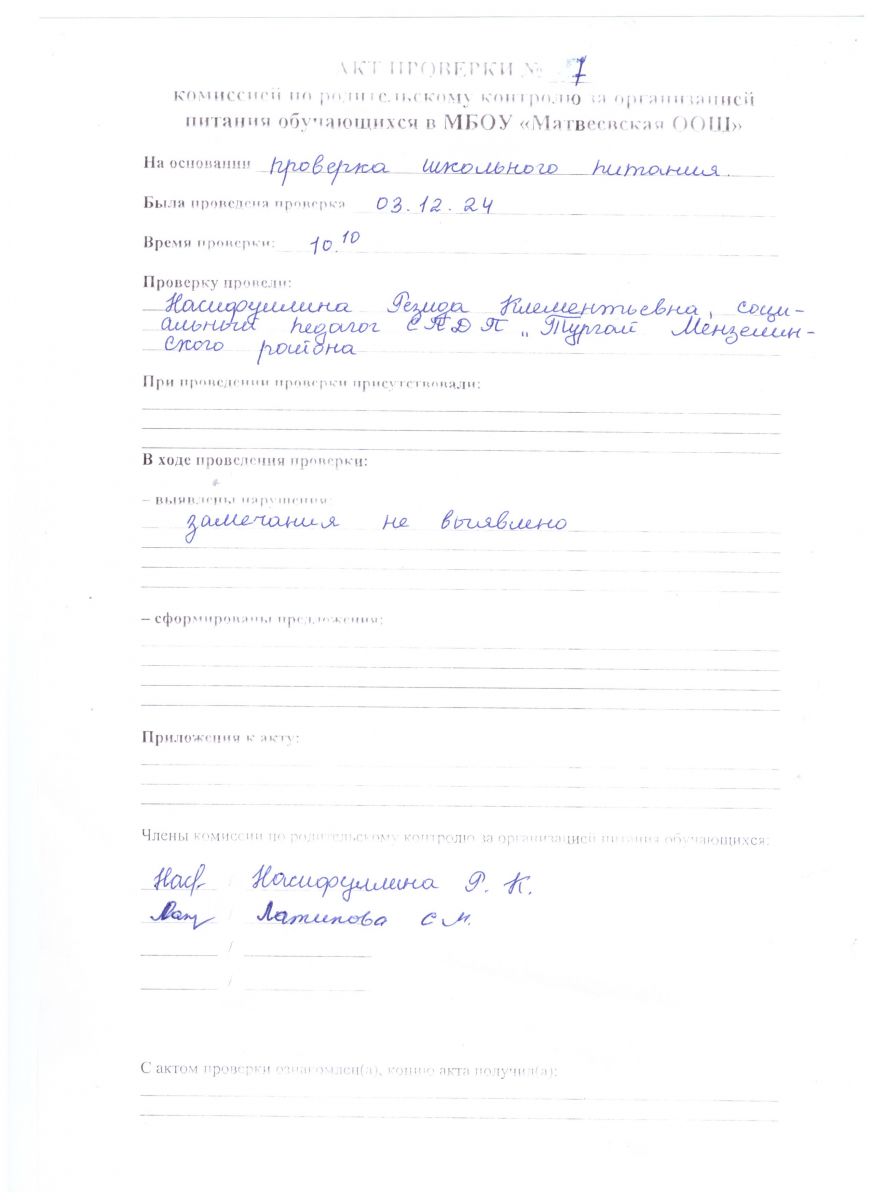 АКТ ПРОВЕРКИ № 7
комиссией по родительскому контролю за организацией
питания обучающихся в МБОУ «Матвеевская ООШ»
На основании проверка школьного питания.
Была проведена проверка 03.12.24
Время проверки: 10.10
Проверку провели:
Насифуллина Резида Клементьевна, соци-
альный педагог САДП „Тургай Мензелин-
ского района
При проведении проверки присутствовали:
В ходе проведения проверки:
– выявлены нарушения:
замечания не выявлено
– сформированы предложения:
Приложения к акту:
Члены комиссии по родительскому контролю за организацией питания обучающихся:
Насф / Насифуллина Р. К.
Лат / Латипова С М.
/
/
С актом проверки ознакомлен(а), копию акта получил(а):